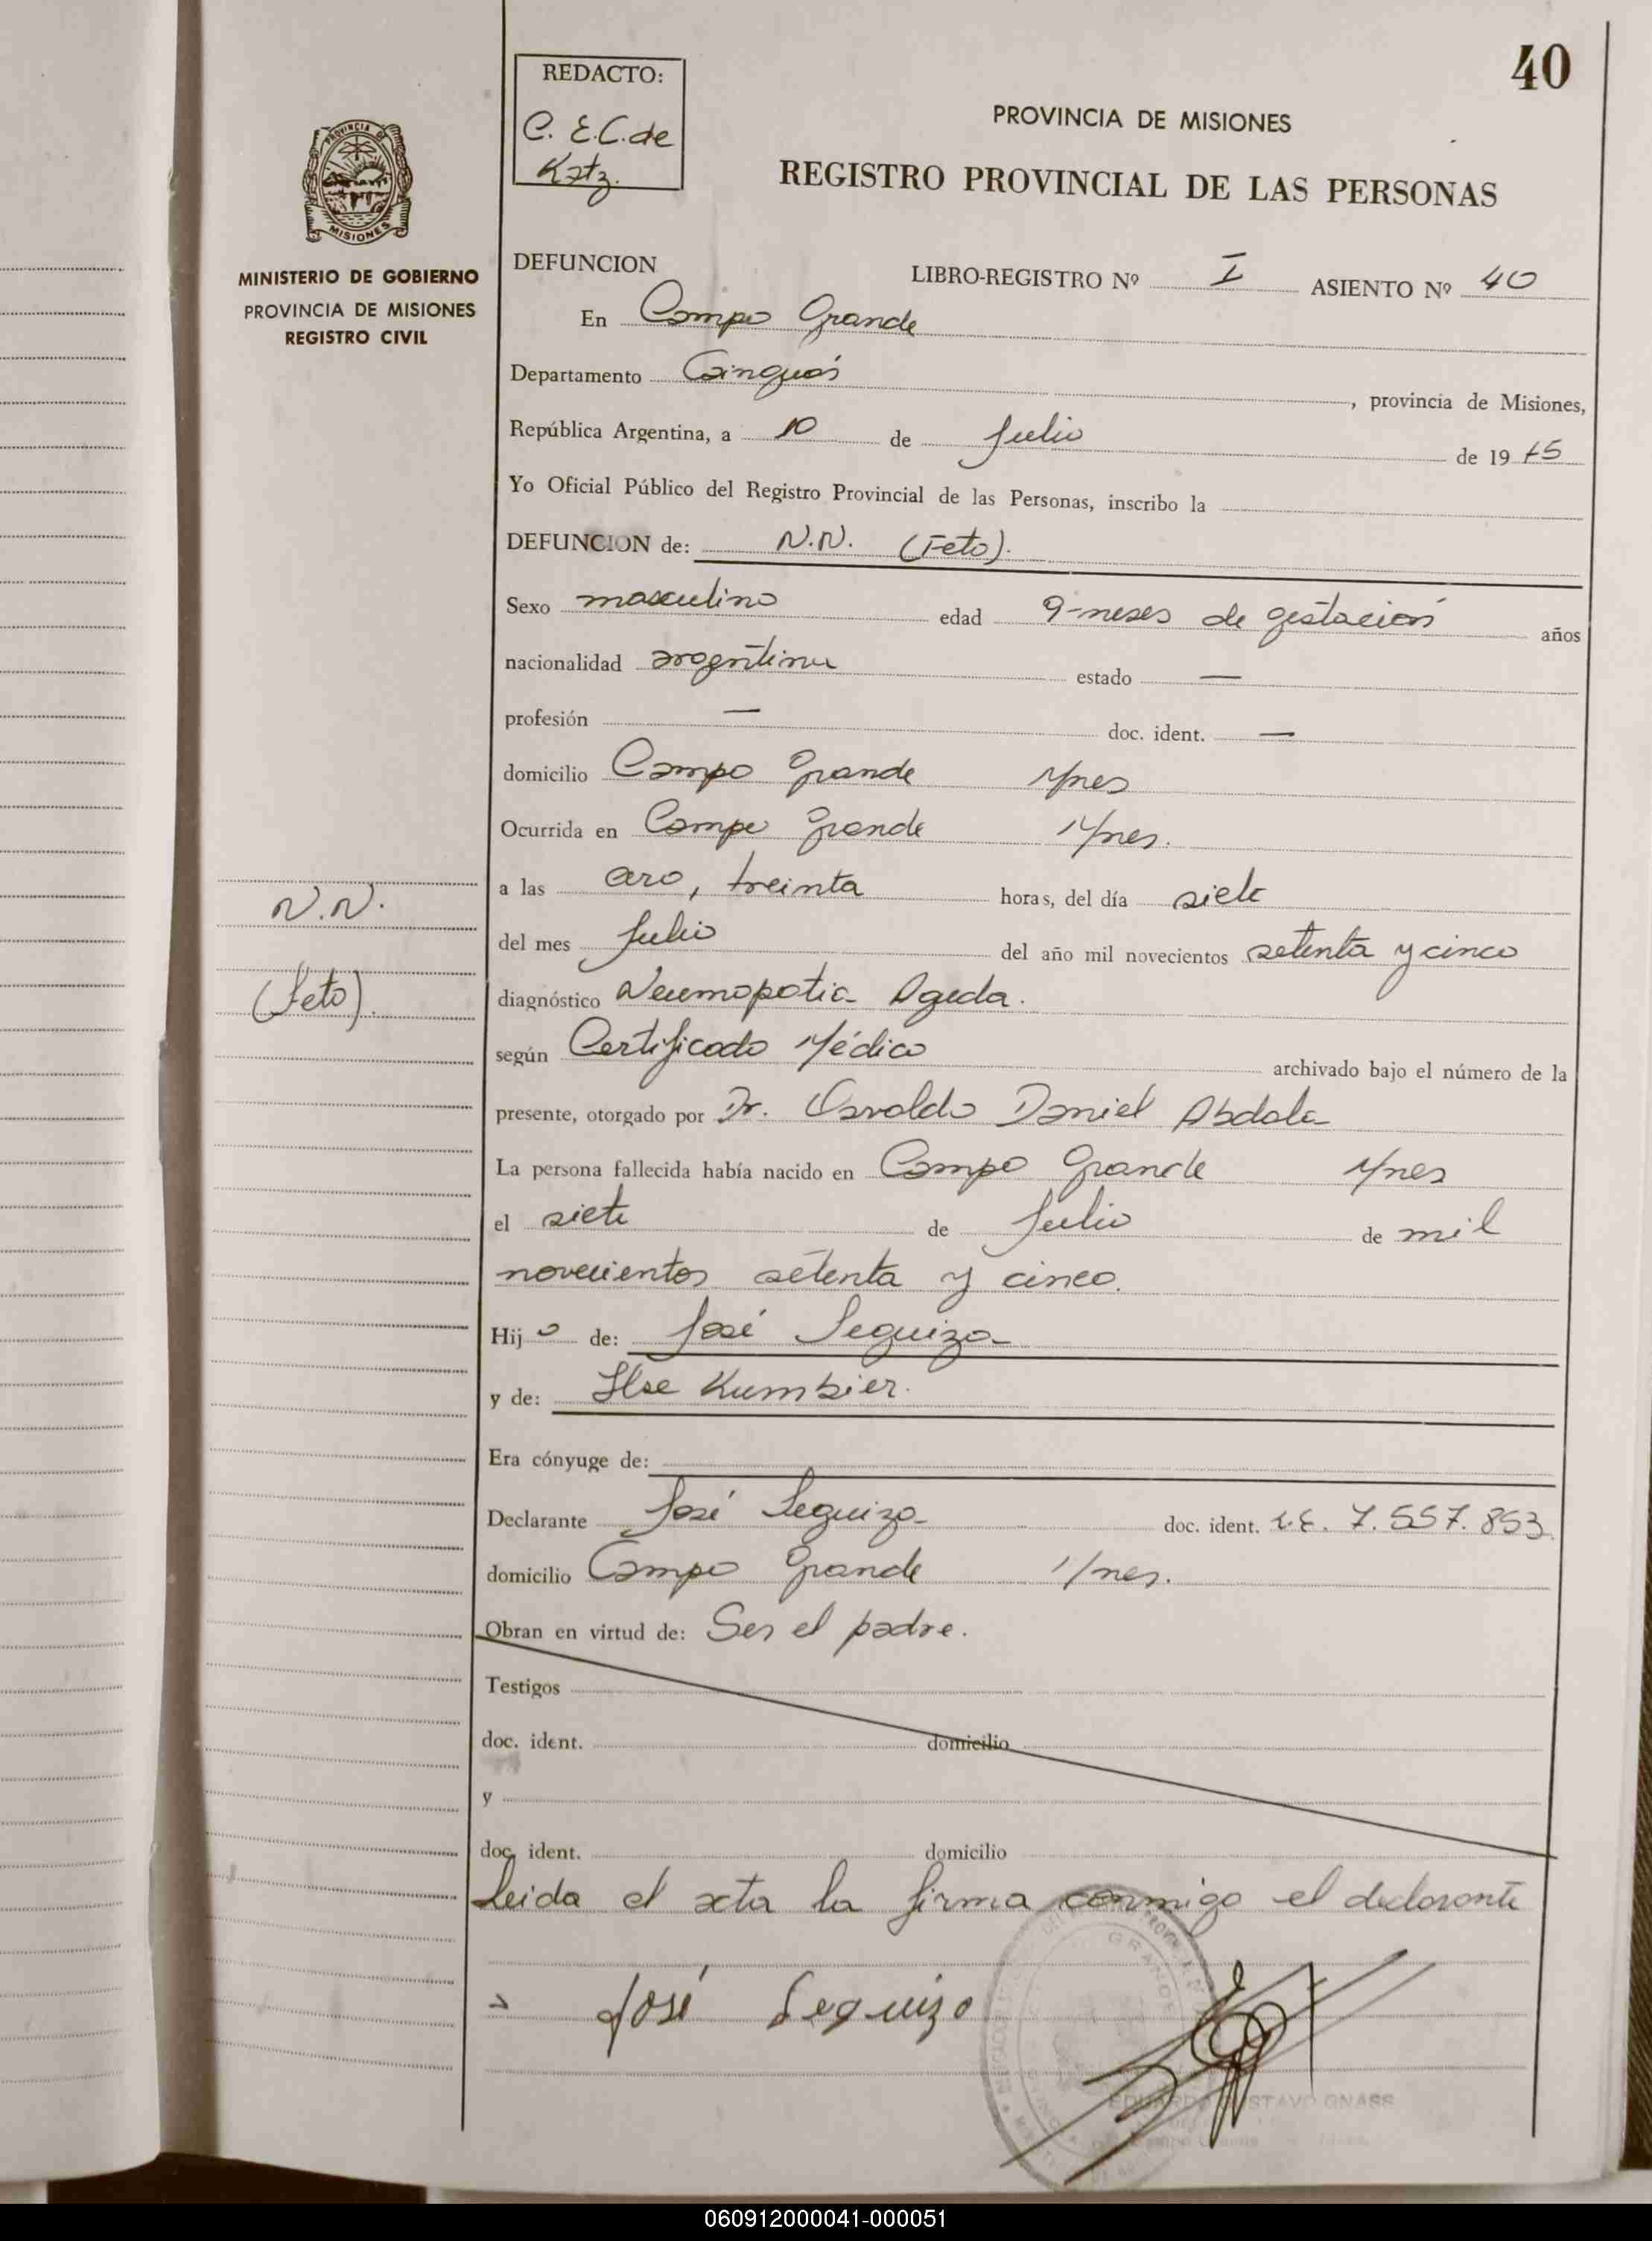 40
REDACTO:
C. E.C. de
Katz.
PROVINCIA DE MISIONES
REGISTRO PROVINCIAL DE LAS PERSONAS
PROVINCIA DE
MISIONES
MINISTERIO DE GOBIERNO
PROVINCIA DE MISIONES
REGISTRO CIVIL
DEFUNCION LIBRO-REGISTRO Nº I ASIENTO Nº 40
En Campo Grande
Departamento Cainguás, provincia de Misiones,
República Argentina, a 10 de Julio de 19 75
Yo Oficial Público del Registro Provincial de las Personas, inscribo la
DEFUNCION de: N.N. (Feto).
Sexo masculino edad 9-meses de gestación años
nacionalidad argentina estado —
profesión — doc. ident. —
domicilio Campo Grande Mnes
Ocurrida en Campo Grande Mnes.
a las cero, treinta horas, del día siete
del mes Julio del año mil novecientos setenta y cinco
diagnóstico Neumopatia Aguda.
según Certificado Médico archivado bajo el número de la
presente, otorgado por Dr. Osvaldo Daniel Abdala
La persona fallecida había nacido en Campo Grande Mnes
el siete de Julio de mil
novecientos setenta y cinco.
Hijo de: José Seguizo
y de: Ilse Kumbier.
Era cónyuge de:
Declarante José Seguizo doc. ident. L.E. 7.557.853.
domicilio Campo Grande Mnes.
Obran en virtud de: Ser el padre.
Testigos
doc. ident. domicilio
y
doc. ident. domicilio
Leida el acta la firma conmigo el declarante
José Seguizo
N.N.
(Feto).
GRANDE
GNASS
060912000041-000051